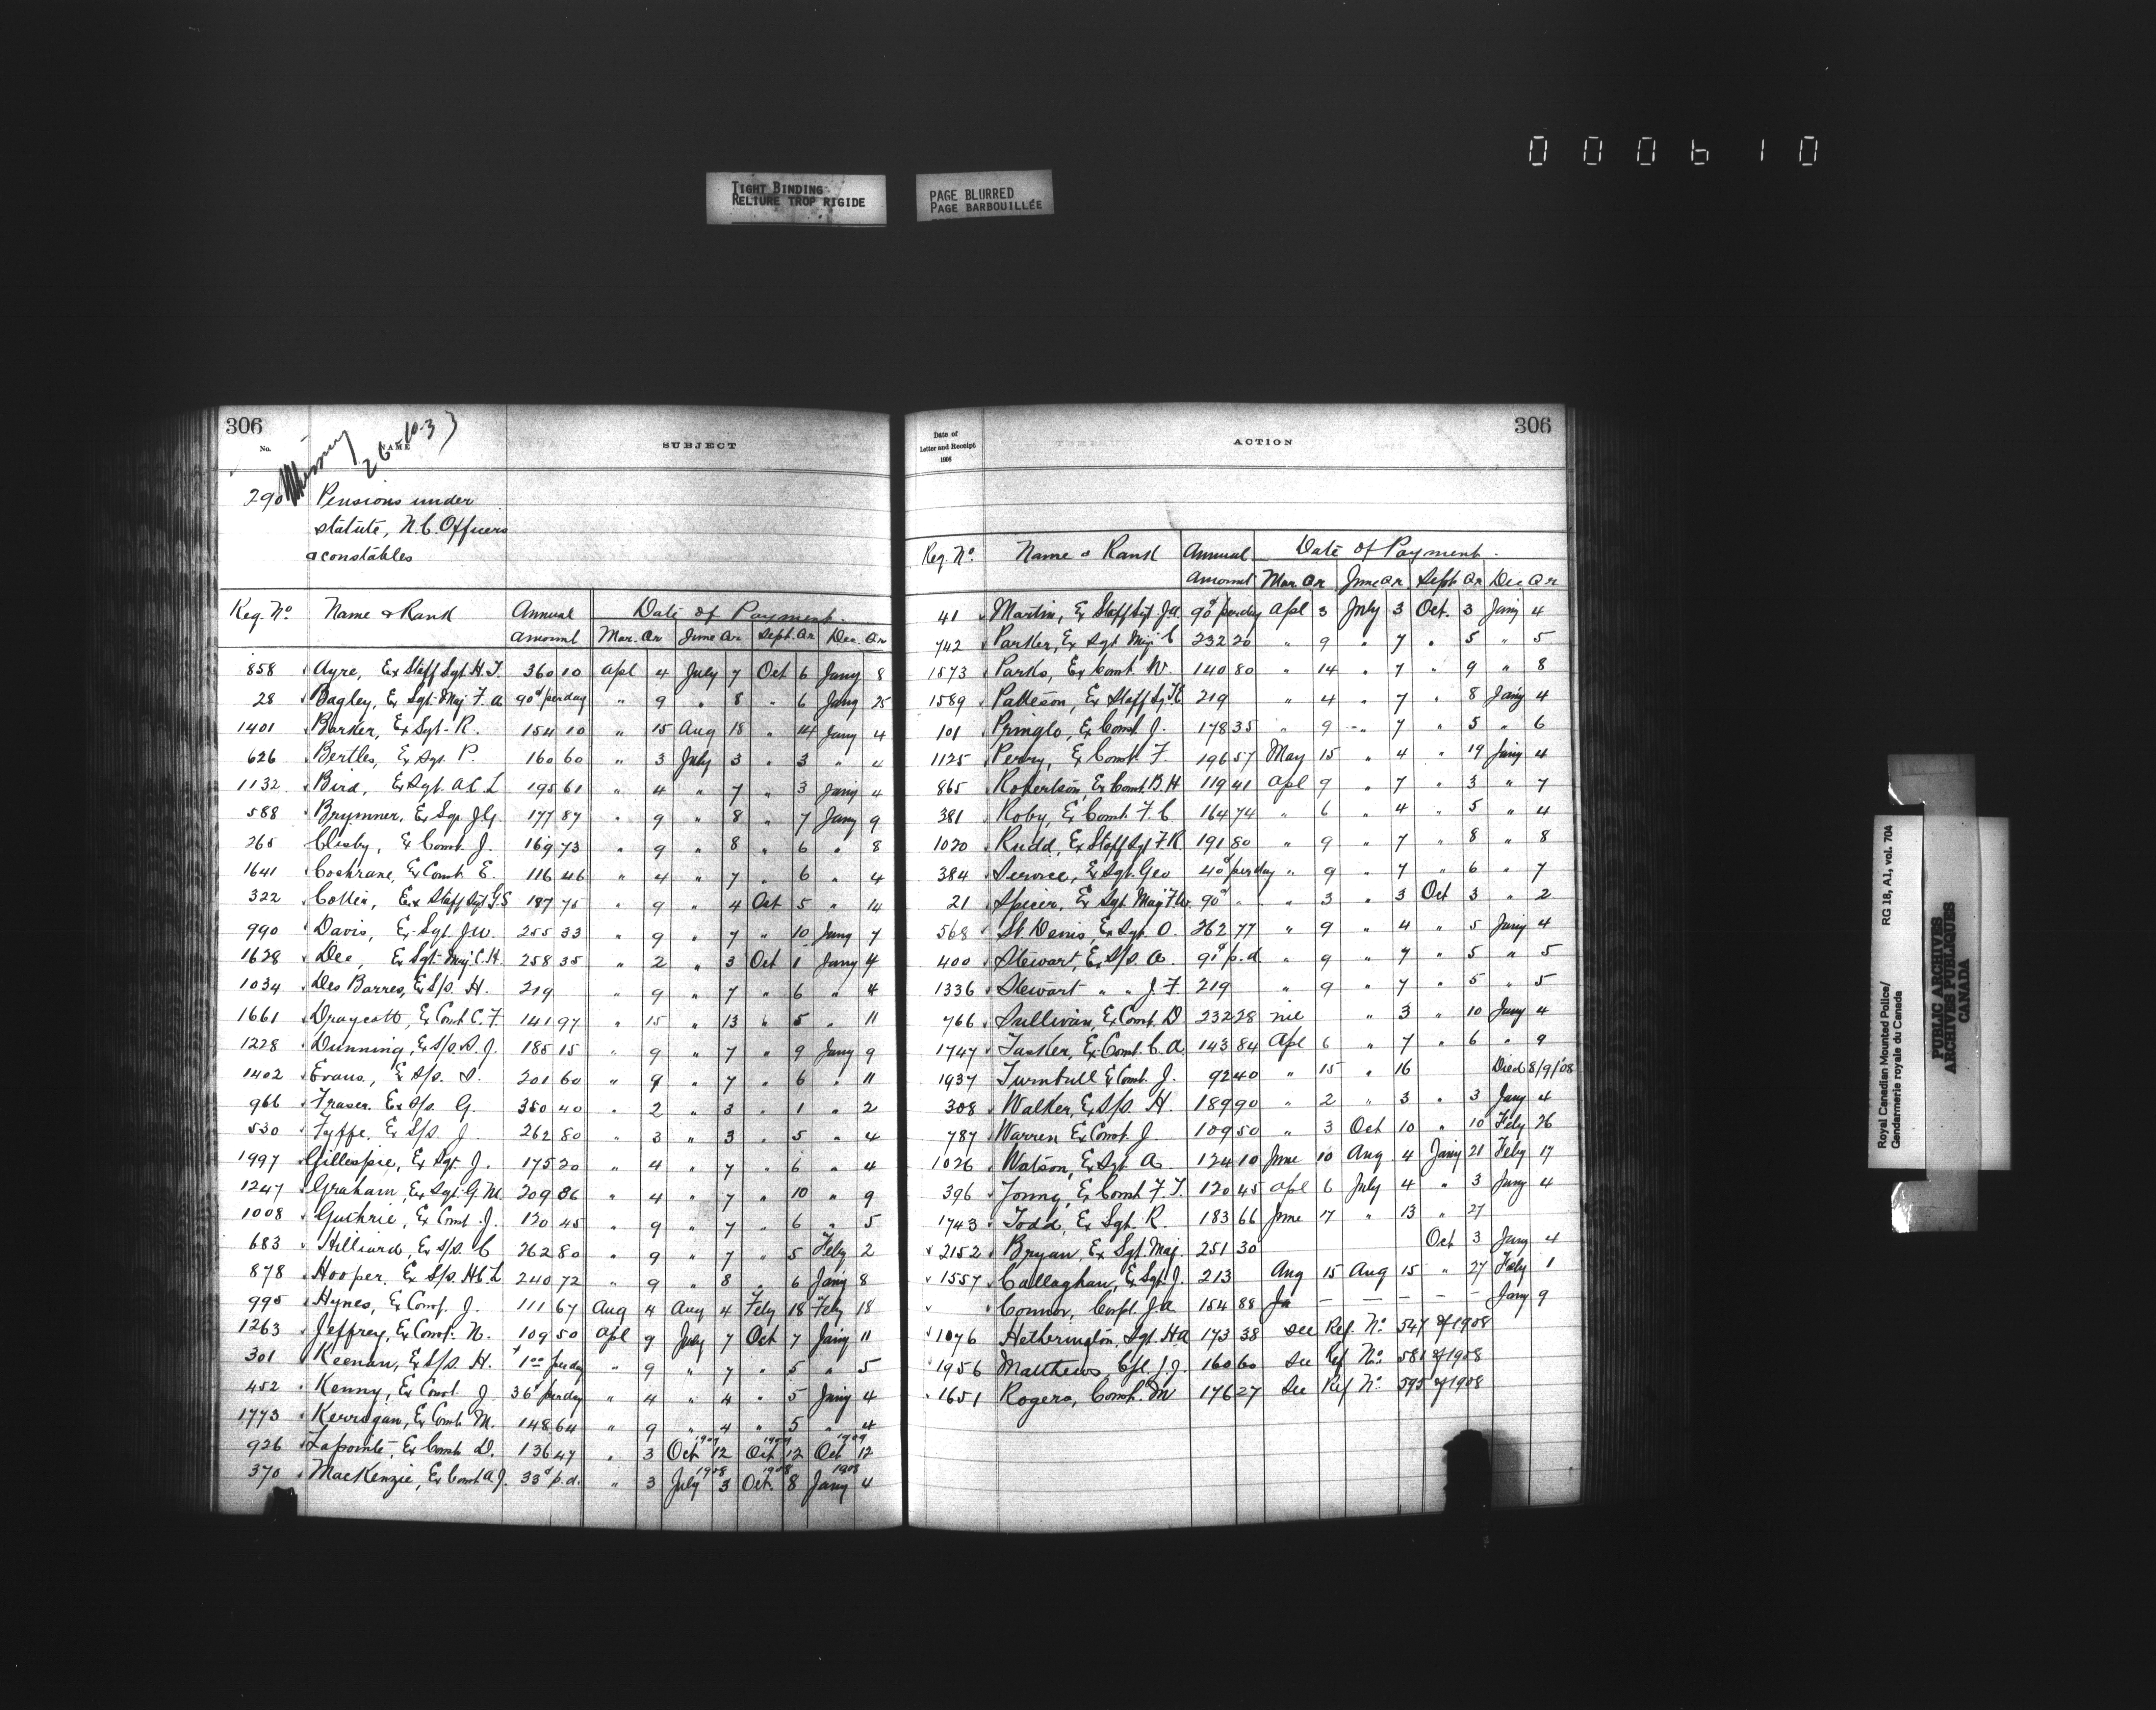 000610
TIGHT BINDING
RELIURE TROP RIGIDE
PAGE BLURRED
PAGE BARBOUILLÉE
306
No.
NAME
26-10-37
SUBJECT
290
Pensions under
statute, N.C. Officers
& constables
Reg. No Name & Rank Annual amount Date of Payment
Mar. Qr June Qr Sept. Qr Dec. Qr
858 Ayre, Ex Staff Sgt. H.T. 360 10 Apl 4 July 7 Oct 6 Jany 8
28 Bagley, Ex Sgt-Maj F.A. 90¢ per day " 9 " 8 " 6 Jany 25
1401 Barker, Ex Sgt. R. 154 10 " 15 Aug 18 " 14 Jany 4
626 Bertles, Ex Sgt. P. 160 60 " 3 July 3 " 3 " 4
1132 Bird, Ex Sgt. A.C.L 195 61 " 4 " 7 " 3 Jany 4
588 Brymner, Ex Sgt. J.G. 177 87 " 9 " 8 " 7 Jany 9
265 Clisby, Ex Const. J. 169 73 " 9 " 8 " 6 " 8
1641 Cochrane, Ex Const. E. 116 46 " 4 " 7 " 6 " 4
322 Ex Staff Sgt G.S 187 75 " 9 " 4 Oct 5 " 14
990 Davis, Ex Sgt. J.W. 255 33 " 9 " 7 " 10 Jany 7
1628 Dee, Ex Sgt-Maj. C.H. 258 35 " 2 " 3 Oct 1 Jany 4
1034 Des Barres, Ex S/S. H. 219 " 9 " 7 " 6 " 4
1661 Draycott, Ex Const C.F. 141 97 " 15 " 13 " 5 " 11
1228 Dunning, Ex S/S. S.J. 185 15 " 9 " 7 " 9 Jany 9
1402 Evans, Ex S/S. S. 201 60 " 9 " 7 " 6 " 11
966 Fraser, Ex S/S. G. 350 40 " 2 " 3 " 1 " 2
530 Fyffe, Ex S/S. J. 262 80 " 3 " 3 " 5 " 4
1997 Gillespie, Ex Sgt. J. 175 20 " 4 " 7 " 6 " 4
1247 Graham, Ex Sgt. G.M. 209 86 " 4 " 7 " 10 " 9
1008 Guthrie, Ex Const. J. 120 45 " 9 " 7 " 6 " 5
683 Hilliard, Ex S/S. C 262 80 " 9 " 7 " 5 Feby 2
878 Hooper, Ex S/S. H.C.L 240 72 " 9 " 8 " 6 Jany 8
995 Hynes, Ex Const. J. 111 67 Aug 4 Aug 4 Feby 18 Feby 18
1263 Jeffrey, Ex Const. N. 109 50 Apl 9 July 7 Oct 7 Jany 11
301 Keenan, Ex S/S. H. 1 00 per day " 9 " 7 " 5 " 5
452 Kenny, Ex Const. J. 36¢ per day " 4 " 4 " 5 Jany 4
1773 Kerrigan, Ex Const. M. 148 64 " 9 " 4 " 5 " 4
926 Lapointe, Ex Const. D. 136 47 " 3 Oct 1909 12 Oct 1909 12 Oct 1909 12
370 MacKenzie, Ex Const. A.J. 33¢ p.d. " 3 July 1908 3 Oct. 1908 8 Jany 1909 4
Date of
Letter and Receipt
1908
ACTION
306
Reg. No. Name & Rank Annual Amount Date of Payment.
Mar. Qr June Qr Sept Qr Dec Qr
41 Martin, Ex Staff Sgt. J.A. 90¢ per day Apl 3 July 3 Oct. 3 Jany 4
742 Parker, Ex Sgt Maj C 232 20 " 9 " 7 " 5 " 5
1573 Parks, Ex Const W. 140 80 " 14 " 7 " 9 " 8
1589 Patteson, Ex Staff Sgt 219 " 4 " 7 " 8 Jany 4
101 Pringle, Ex Const J. 178 35 " 9 " 7 " 5 " 6
1125 Perry, Ex Const. F. 196 57 May 15 " 4 " 19 Jany 4
865 Robertson, Ex Const. B.H 119 41 Apl 9 " 7 " 3 " 7
381 Roby, Ex Const. F.C. 164 74 " 6 " 4 " 5 " 4
1020 Rudd, Ex Staff Sgt F.R. 191 80 " 9 " 7 " 8 " 8
384 Service, Ex Sgt. Geo 40¢ per day " 9 " 7 " 6 " 7
21 Spicer, Ex Sgt Maj F.W. 90¢ " " 3 " 3 Oct 3 " 2
568 St. Denis, Ex Sgt. O. 262 77 " 9 " 4 " 5 Jany 4
400 Stewart, Ex S/S. A. 91¢ p.d " 9 " 7 " 5 " 5
1336 Stewart " " J.F. 219 " 9 " 7 " 5 " 5
766 Sullivan, Ex Const. D 232 28 nil " 3 " 10 Jany 4
1747 Tasker, Ex Const. C.A. 143 84 Apl 6 " 7 " 6 " 9
1937 Turnbull Ex Const. J. 92 40 " 15 " 16 Died 8/9/08
308 Walker, Ex S/S. H. 189 90 " 2 " 3 " 3 Jany 4
787 Warren Ex Const. J. 109 50 " 3 Oct 10 " 10 Feby 26
1026 Watson, Ex Sgt. A. 124 10 June 10 Aug 4 Jany 21 Feby 17
396 Young, Ex Const F.T. 120 45 Apl 6 July 4 " 3 Jany 4
1743 Todd, Ex Sgt. R. 183 66 June 17 " 13 " 27
2152 Bryan, Ex Sgt. Maj. 251 30 Oct 3 Jany 4
1557 Callaghan, Ex Sgt. J. 213 Aug 15 Aug 15 " 27 Feby 1
Connor, Corpl. J.A 154 88 Ja — — — — — Jany 9
1076 Hetherington, Sgt. H.A 173 38 See Ref. No. 547 of 1908
1956 Matthews, Cpl. J.J. 160 60 See Ref No. 581 of 1908
1651 Rogers, Const. M 176 27 See Ref No. 595 of 1908
Royal Canadian Mounted Police/
Gendarmerie royale du Canada
RG 18, A1, vol. 704
PUBLIC ARCHIVES
ARCHIVES PUBLIQUES
CANADA